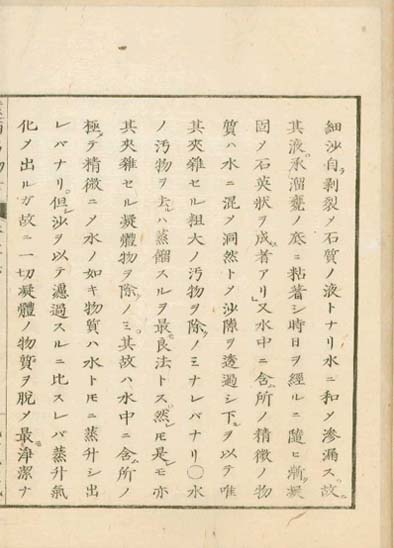 細沙自ラ剥裂メ石質ノ液トナリ水ニ和メ滲漏ス故ニ
其液承溜甕ノ底ニ粘着シ時日ヲ經ルニ隨ヒ漸ク凝
固メ石英狀ヲ成ス者アリ」又水中ニ含ム所ノ精微ノ物
質ハ水ニ混メ洞然トメ沙隙ヲ透過シ下ルヲ以テ唯
其夾雜セル粗大ノ汚物ヲ除クノミナレバナリ○水
ノ汚物ヲ去ルハ蒸餾スルヲ最良法トス然レモ是レモ亦
其夾雜セル凝體物ヲ除クノミ其故ハ水中ニ含ム所ノ
極テ精微ニメ水ノ如キ物質ハ水トモニ蒸升シ出
レバナリ但シ沙ヲ以テ濾過スルニ比スレバ蒸升氣
化メ出ルガ故ニ一切凝體ノ物質ヲ脱メ最淨潔ナ